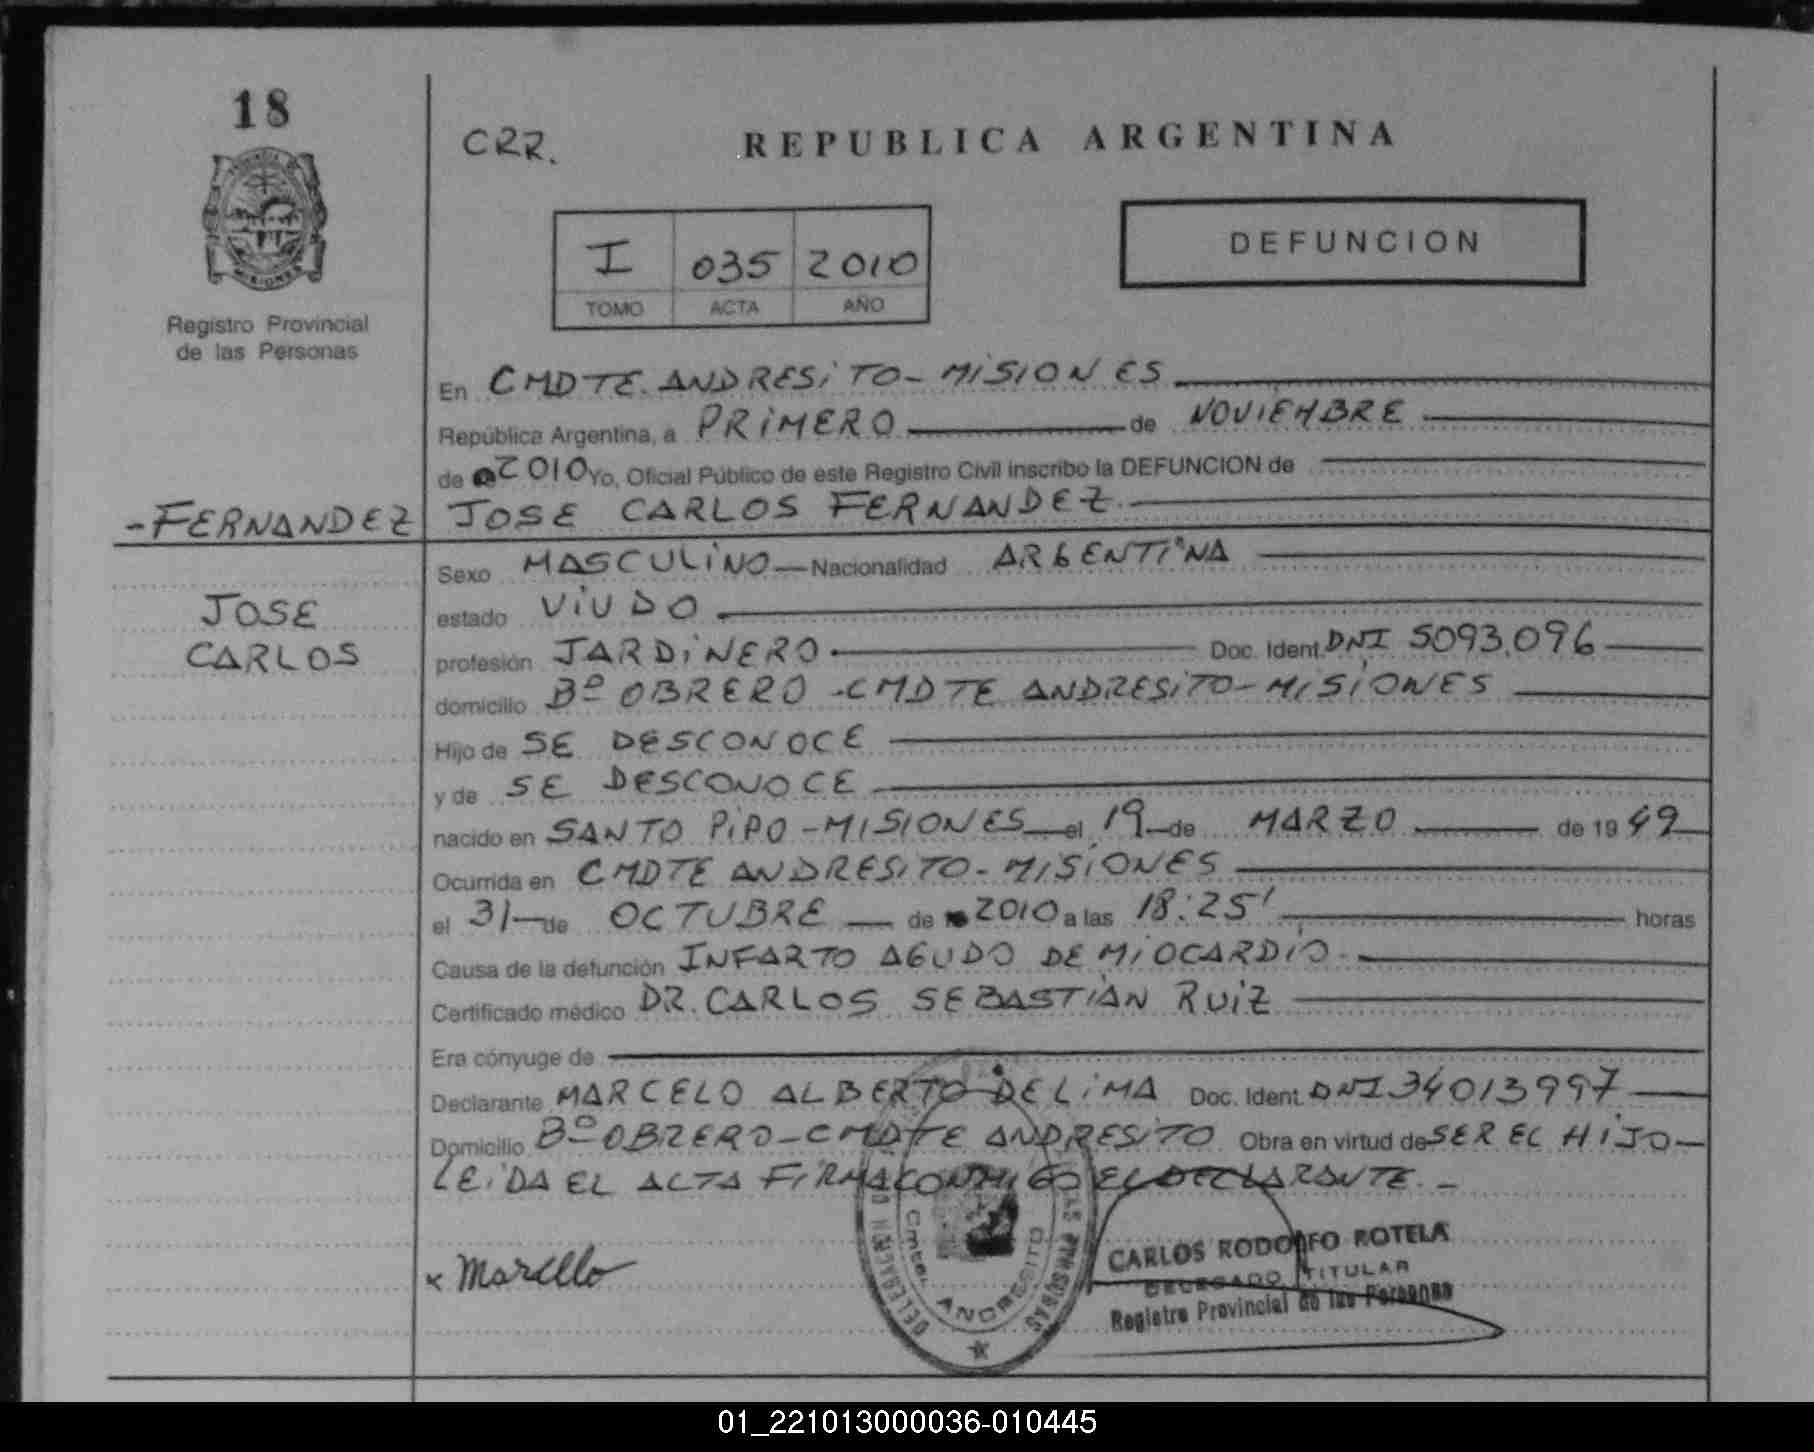 18
CRR.
REPUBLICA ARGENTINA
MISIONES
I 035 2010
TOMO ACTA AÑO
DEFUNCION
Registro Provincial
de las Personas
En CMDTE. ANDRESITO - MISIONES
República Argentina, a PRIMERO de NOVIEMBRE
de 2010 Yo, Oficial Público de este Registro Civil inscribo la DEFUNCION de
- FERNANDEZ JOSE CARLOS FERNANDEZ.
Sexo MASCULINO Nacionalidad ARGENTINA
JOSE
estado VIUDO
CARLOS
profesión JARDINERO Doc. Ident. DNI 5093.096
domicilio Bº OBRERO - CMDTE ANDRESITO - MISIONES
Hijo de SE DESCONOCE
y de SE DESCONOCE
nacido en SANTO PIPO - MISIONES el 19 de MARZO de 1949
Ocurrida en CMDTE ANDRESITO - MISIONES
el 31 de OCTUBRE de 2010 a las 18:25' horas
Causa de la defunción INFARTO AGUDO DE MIOCARDIO.
Certificado médico DR. CARLOS SEBASTIAN RUIZ
Era cónyuge de
Declarante MARCELO ALBERTO DE LIMA Doc. Ident. DNI 34013997
Domicilio Bº OBRERO - CMDTE ANDRESITO Obra en virtud de SER EL HIJO -
LEIDA EL ACTA FIRMA CONMIGO EL DECLARANTE. -
x Marcello
Cmte. ANDRESITO
CARLOS RODOLFO ROTELA
DELEGADO TITULAR
Registro Provincial de las Personas
01_221013000036-010445